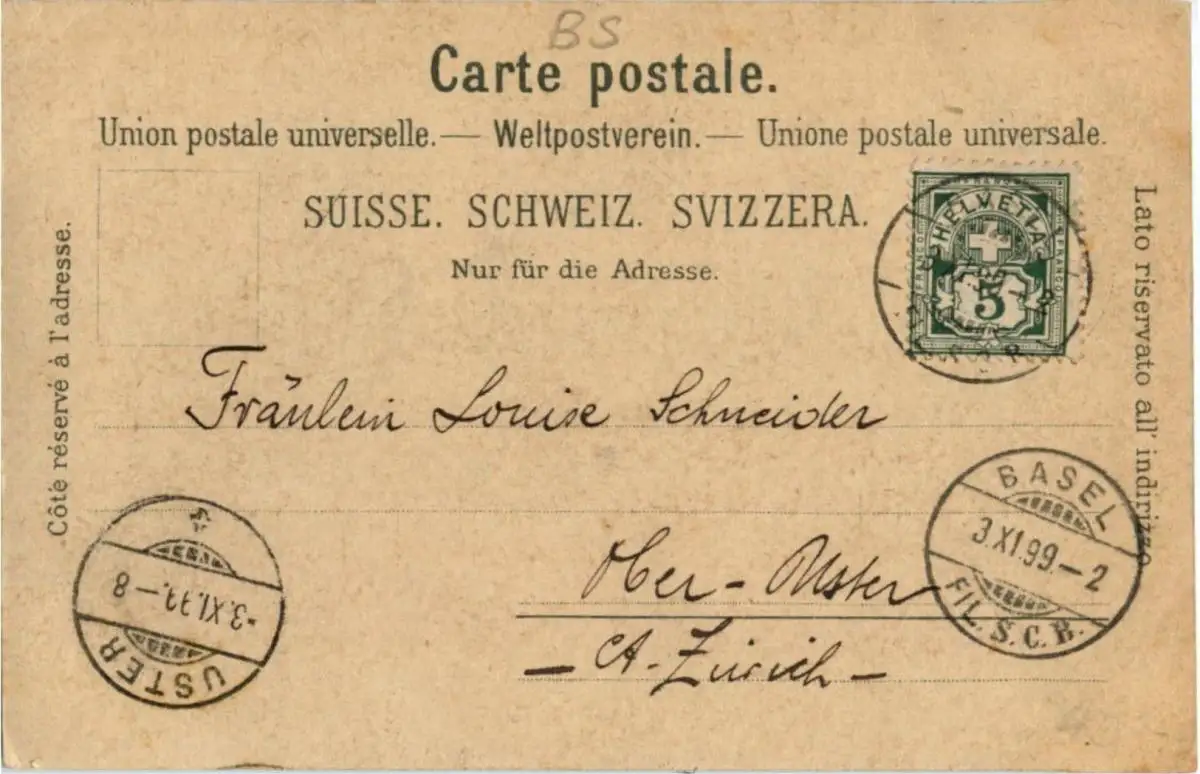 BS
Carte postale.
Union postale universelle. — Weltpostverein. — Unione postale universale.
SUISSE. SCHWEIZ. SVIZZERA.
Nur für die Adresse.
Côté réservé à l'adresse.
Lato riservato all' indirizzo
HELVETIA
FRANCO
FRANCO
5
Fräulein Louise Schneider
Ober-Uster
— Ct. Zürich —
BASEL
3.XI.99.–2
FIL. S.C.B.
USTER
-3.XI.99.–8